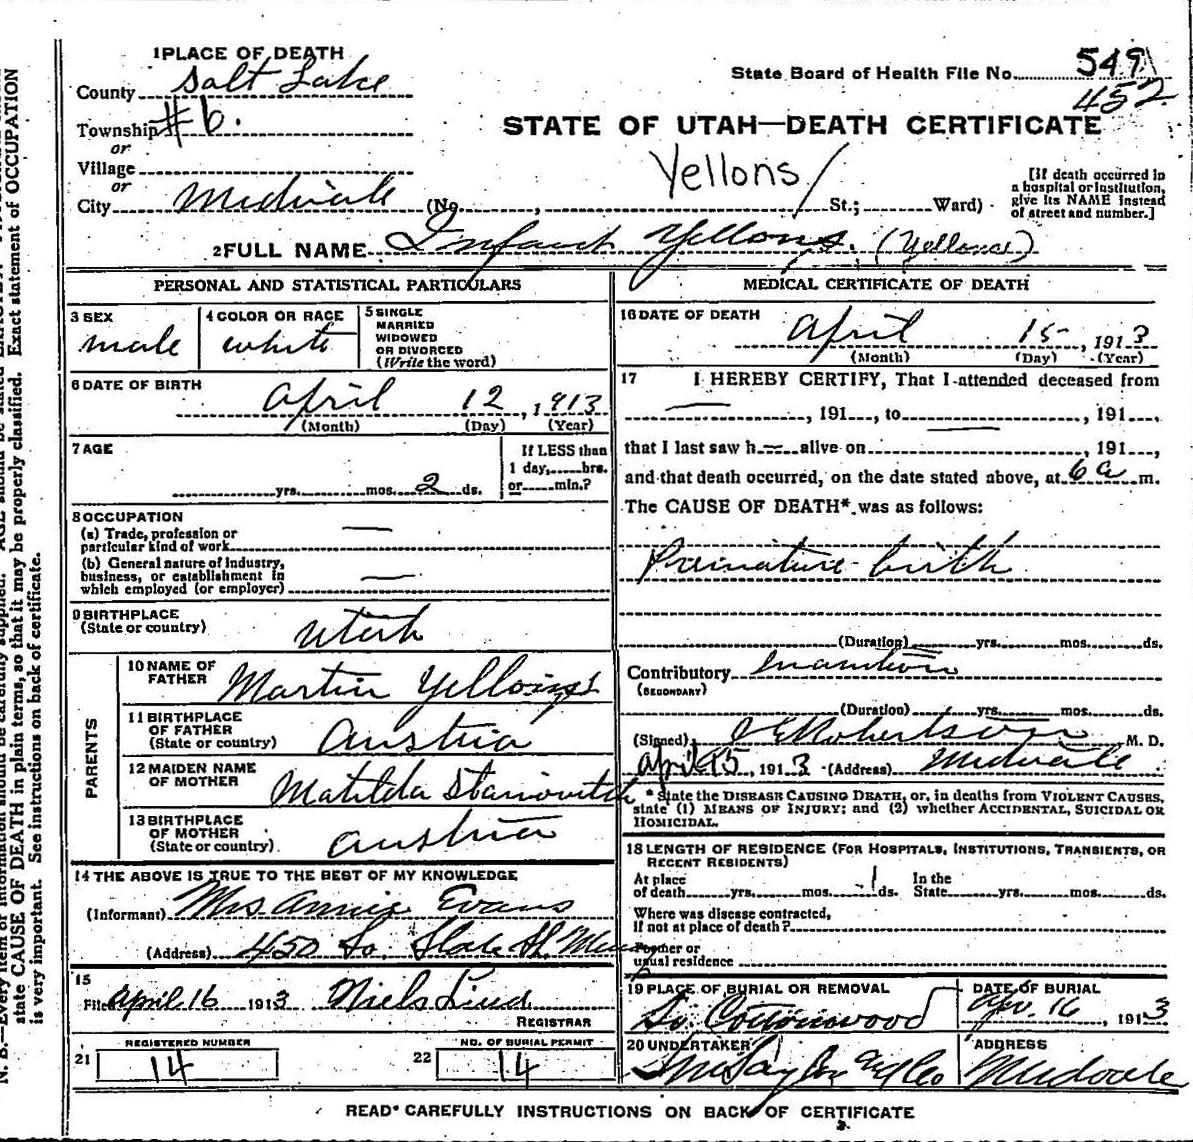 1 PLACE OF DEATH
County Salt Lake
State Board of Health File No. 549
452
Township #6.
or
STATE OF UTAH—DEATH CERTIFICATE
Village
or
Yellons/
[If death occurred in
a hospital or institution,
give its NAME instead
of street and number.]
City Midvale (No. , St.; Ward)
2 FULL NAME Infant Yellons. (Yellons)
PERSONAL AND STATISTICAL PARTICULARS
3 SEX
male
4 COLOR OR RACE
white
5 SINGLE
MARRIED
WIDOWED
OR DIVORCED
(Write the word)
6 DATE OF BIRTH
April 12, 1913
(Month) (Day) (Year)
7 AGE
yrs. mos. 2 ds.
If LESS than
1 day, hrs.
or min.?
8 OCCUPATION
(a) Trade, profession or
particular kind of work
(b) General nature of industry,
business, or establishment in
which employed (or employer)
9 BIRTHPLACE
(State or country)
Utah
PARENTS
10 NAME OF
FATHER
Martin
11 BIRTHPLACE
OF FATHER
(State or country)
Austria
12 MAIDEN NAME
OF MOTHER
Matilda Stanovitch
13 BIRTHPLACE
OF MOTHER
(State or country)
Austria
14 THE ABOVE IS TRUE TO THE BEST OF MY KNOWLEDGE
(Informant) Mrs Annie Evans
(Address) 450 So. State St.
15
Filed April 16 1913 Niels Lind
REGISTRAR
21
REGISTERED NUMBER
14
22
NO. OF BURIAL PERMIT
14
MEDICAL CERTIFICATE OF DEATH
16 DATE OF DEATH
April 15, 1913
(Month) (Day) (Year)
17 I HEREBY CERTIFY, That I attended deceased from
, 191 , to , 191 ,
that I last saw h alive on , 191 ,
and that death occurred, on the date stated above, at 6 a m.
The CAUSE OF DEATH* was as follows:
Premature birth
(Duration) yrs. mos. ds.
Contributory Inanition
(SECONDARY)
(Duration) yrs. mos. ds.
(Signed) Robertson M. D.
April 15, 1913 (Address) Midvale
* State the DISEASE CAUSING DEATH, or, in deaths from VIOLENT CAUSES,
state (1) MEANS OF INJURY; and (2) whether ACCIDENTAL, SUICIDAL OR
HOMICIDAL.
18 LENGTH OF RESIDENCE (FOR HOSPITALS, INSTITUTIONS, TRANSIENTS, OR
RECENT RESIDENTS)
At place
of death yrs. mos. ds.
In the
State yrs. mos. ds.
Where was disease contracted,
If not at place of death?
Former or
usual residence
19 PLACE OF BURIAL OR REMOVAL
So. Cottonwood
DATE OF BURIAL
Apr. 16, 1913
20 UNDERTAKER
ADDRESS
Midvale
READ CAREFULLY INSTRUCTIONS ON BACK OF CERTIFICATE
state CAUSE OF DEATH in plain terms, so that it may be properly classified. Exact statement of OCCUPATION
is very important. See instructions on back of certificate.